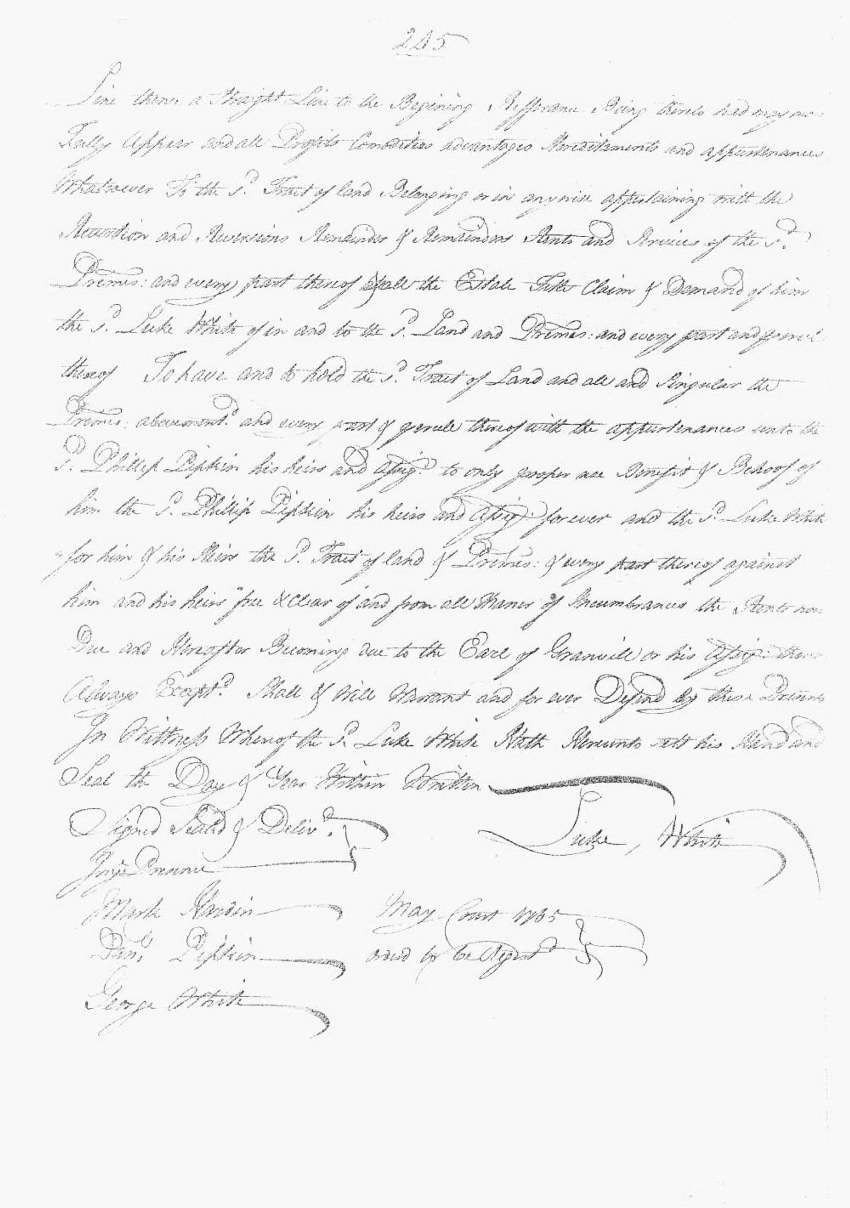 245
Line thence a Straight Line to the Begining Refferance Being thereto had may more
Fully Appear and all Profits Comodities advantages Hereditaments and appurtenances
Whatsoever To the Sd. Tract of land Belonging or in any wise appertaining with the
Revertion and Revertions Remainder & Remainders Rents and Services of the Sd.
Premes: and every part thereof & all the Estate Title Claim & Demand of him
the Sd. Luke White of in and to the Sd. Land and Premes: and every part and percel
thereof To have and to hold the Sd. Tract of Land and all and Singular the
Premes: abovementd. and every part & percele thereof with the appurtenances unto the
Sd. Phillip Pipkin his heirs and Assigs. to only proper use Benefit & Behoof of
him the Sd. Phillip Pipkin his heirs and Assigs: forever and the Sd. Luke White
for him & his Heirs the Sd. Tract of land & Premes: & every part thereof against
him and his heirs free & Clear of and from all Maner of Incumbrances the Rents now
Due and Hereafter Becoming due to the Earl of Granvill or his Assigs:
Always Exceptd. Shall & Will Warrant and for ever Defend by these Presents
In Wittness Whereof the Sd. Luke White Hath Hereunto sett his Hand and
Seal the Day & Year Within Written
Signed Seald & Delivd.
In ye Presence
Luke White
Mark Hardin
May Court 1765
Danl. Pipkin
ordd to be Regestd
George White